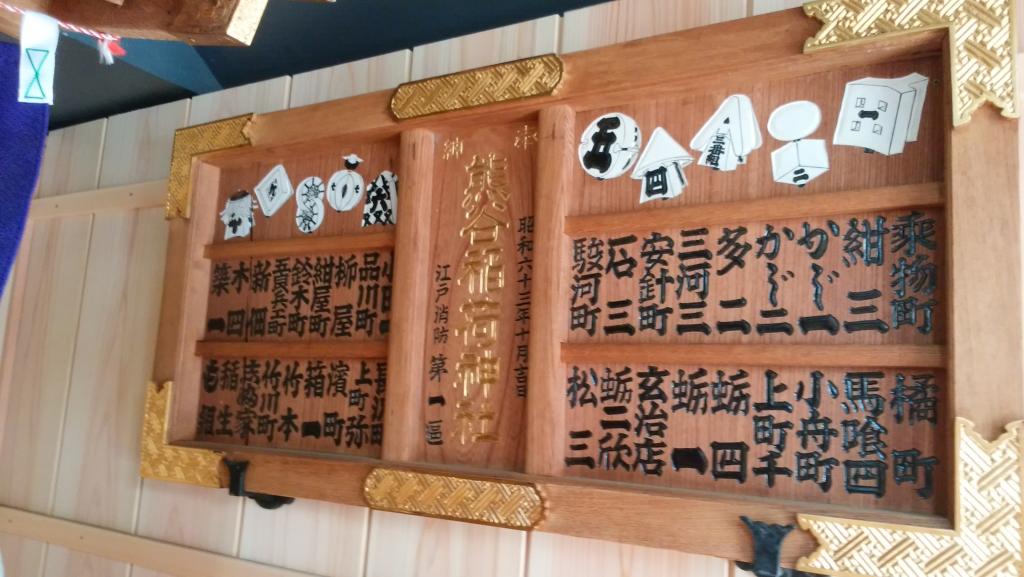 一
二
三番組
四
五
乗物町
紺三
かじ一
かじ二
多二
三河三
安針町
石三
駿河町
橘町
馬喰四
小舟町
上町千
蛎四
蛎一
玄治店
蛎二欣
松三
奉
納
昭和六十三年十月吉日
熊谷稲荷神社
江戸消防第一區
品川町
柳屋
紺屋町
鈴木町
新佃
木四
築一
上町弥
濱町
箱一
竹本
竹川町
稲生
も組